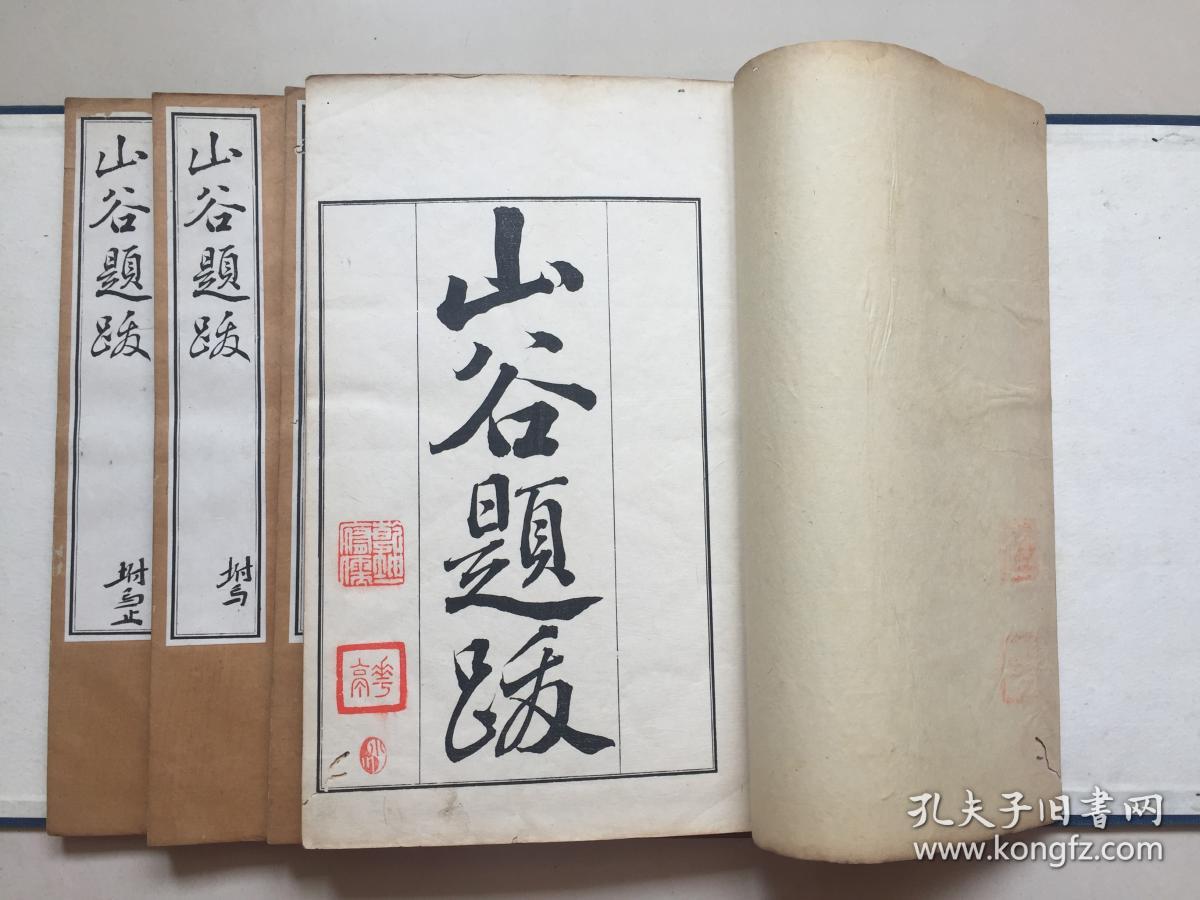 山谷題跋
山谷題跋
山谷題跋
乾坤
腐儒
孔夫子旧书网
www.kongfz.com